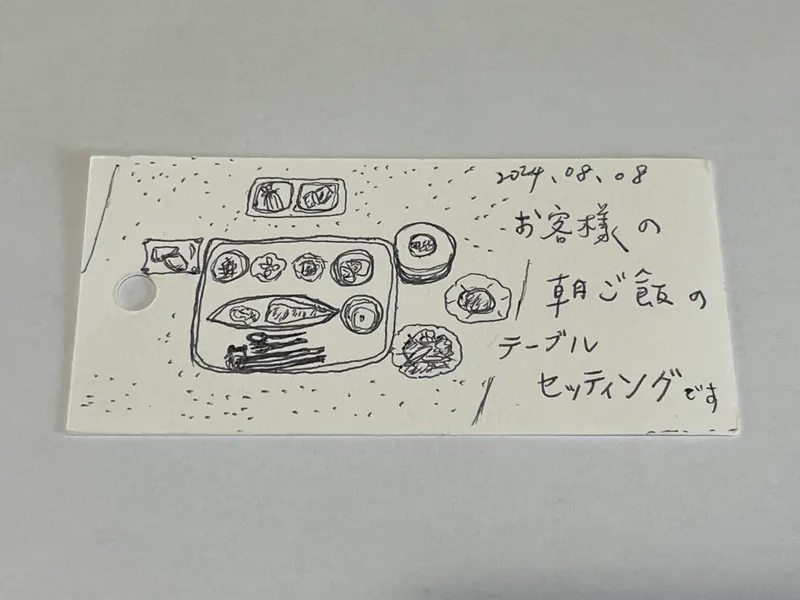 2024.08.08
お客様の
朝ご飯の
テーブル
セッティングです